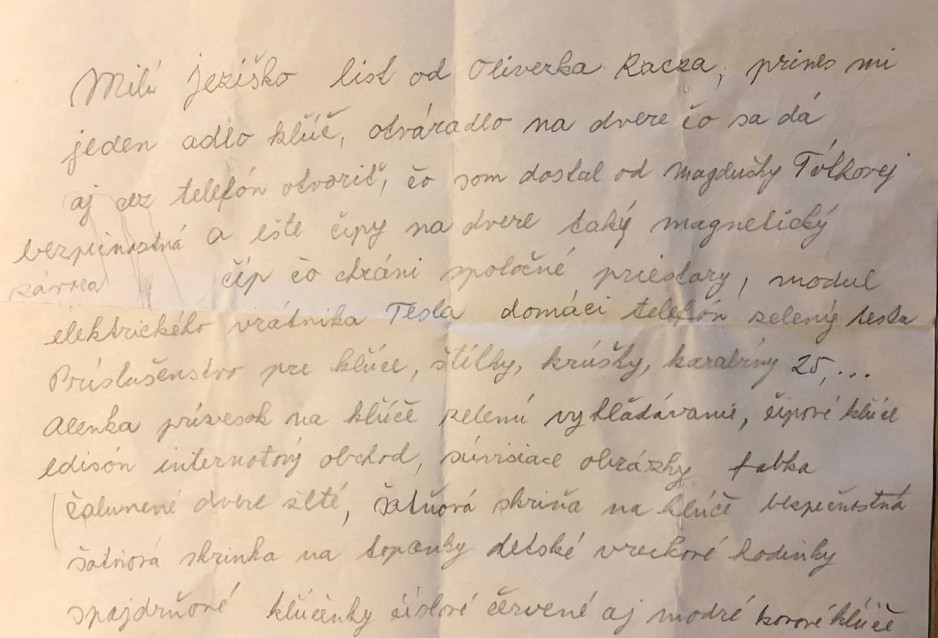 Milú Ježiško list od Oliverka Racza, prines mi
jeden adlo kľúč, otváradlo na dvere čo sa dá
aj cez telefón otvoriť, čo som dostal od Magdučky Tóthovej
bezpečnostná a ešte čipy na dvere taký magnetický
závora čip čo chráni spoločné priestory, modul
elektrického vrátnika Tesla domáci telefón zelený tesla
Príslušenstvo pre kľúče, štítky, krúžky, karabíny 25,...
Alenka prívesok na kľúče zelenú vyhľadávanie, čipové kľúče
edisón internetový obchod, súvisiace obrázky fabka
čalunené dvere žlté, šatňová skriňa na kľúče bezpečnostná
šatňová skrinka na topanky detské vreckové hodinky
kľúčenky číslové červené aj modré kovové kľúče